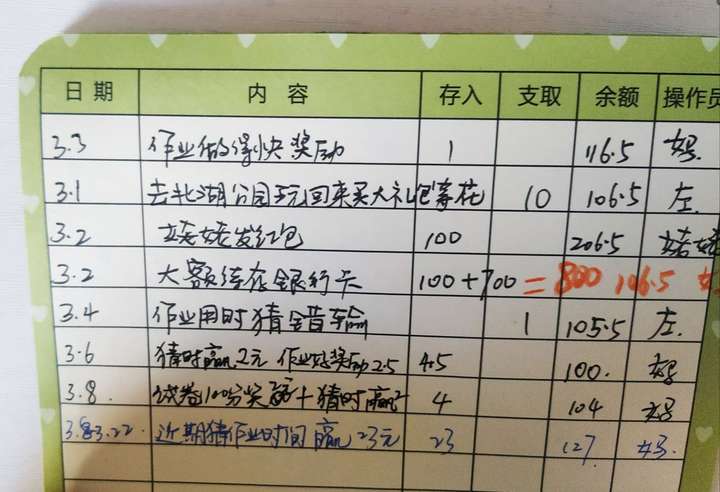 日期 内容 存入 支取 余额 操作员
3.3 作业做得快奖励 1 116.5
3.1 去北湖公园玩回来买大礼包 花 10 106.5 左.
3.2 发红包 100 206.5
3.2 大额 存银行卡 100+700=800 106.5
3.4 作业用时猜错输 1 105.5 左.
3.6 猜时赢2元 作业好奖励2.5 4.5 100.
3.8. 试卷100分奖 +猜时赢2 4 104
3.22. 近期猜作业时间赢23元 23 127